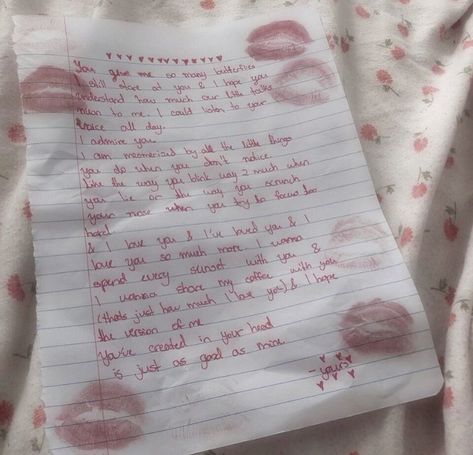 You give me so many butterflies
I still stare at you & I hope you
understand how much our life talks
mean to me. I could listen to your
voice all day.
I admire you
I am mesmerized by all the little things
you do when you don't notice.
Like the way you blink way 2 much when
you lie or the way you scrunch
your nose when you try to focus too
hard.
& I love you & I've loved you & I
love you so much more. I wanna
spend every sunset with you &
I wanna share my coffee with you
(thats just how much I love you) & I hope
the version of me
you've created in your head
is just as good as mine.
- yours